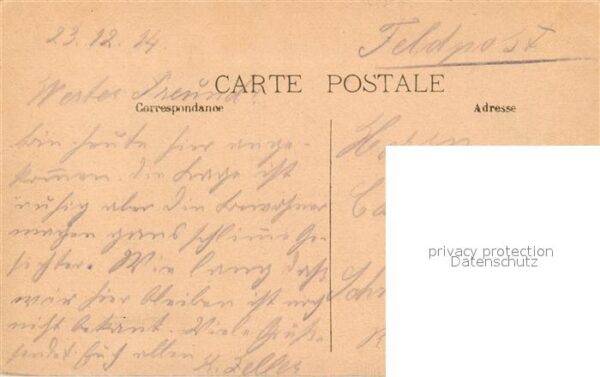 23.12.14
Feldpost
Werter Freund!
CARTE POSTALE
Correspondance
Adresse
bin heute hier ange-
kommen. die Lage ist
ruhig aber die Bewohner
machen ganz schlime Ge-
sichter. Wie lang daß
wir hier bleiben ist noch
nicht bekant. Viele Grüße
sendet Euch allen
K. Zeller
Herrn
privacy protection
Datenschutz